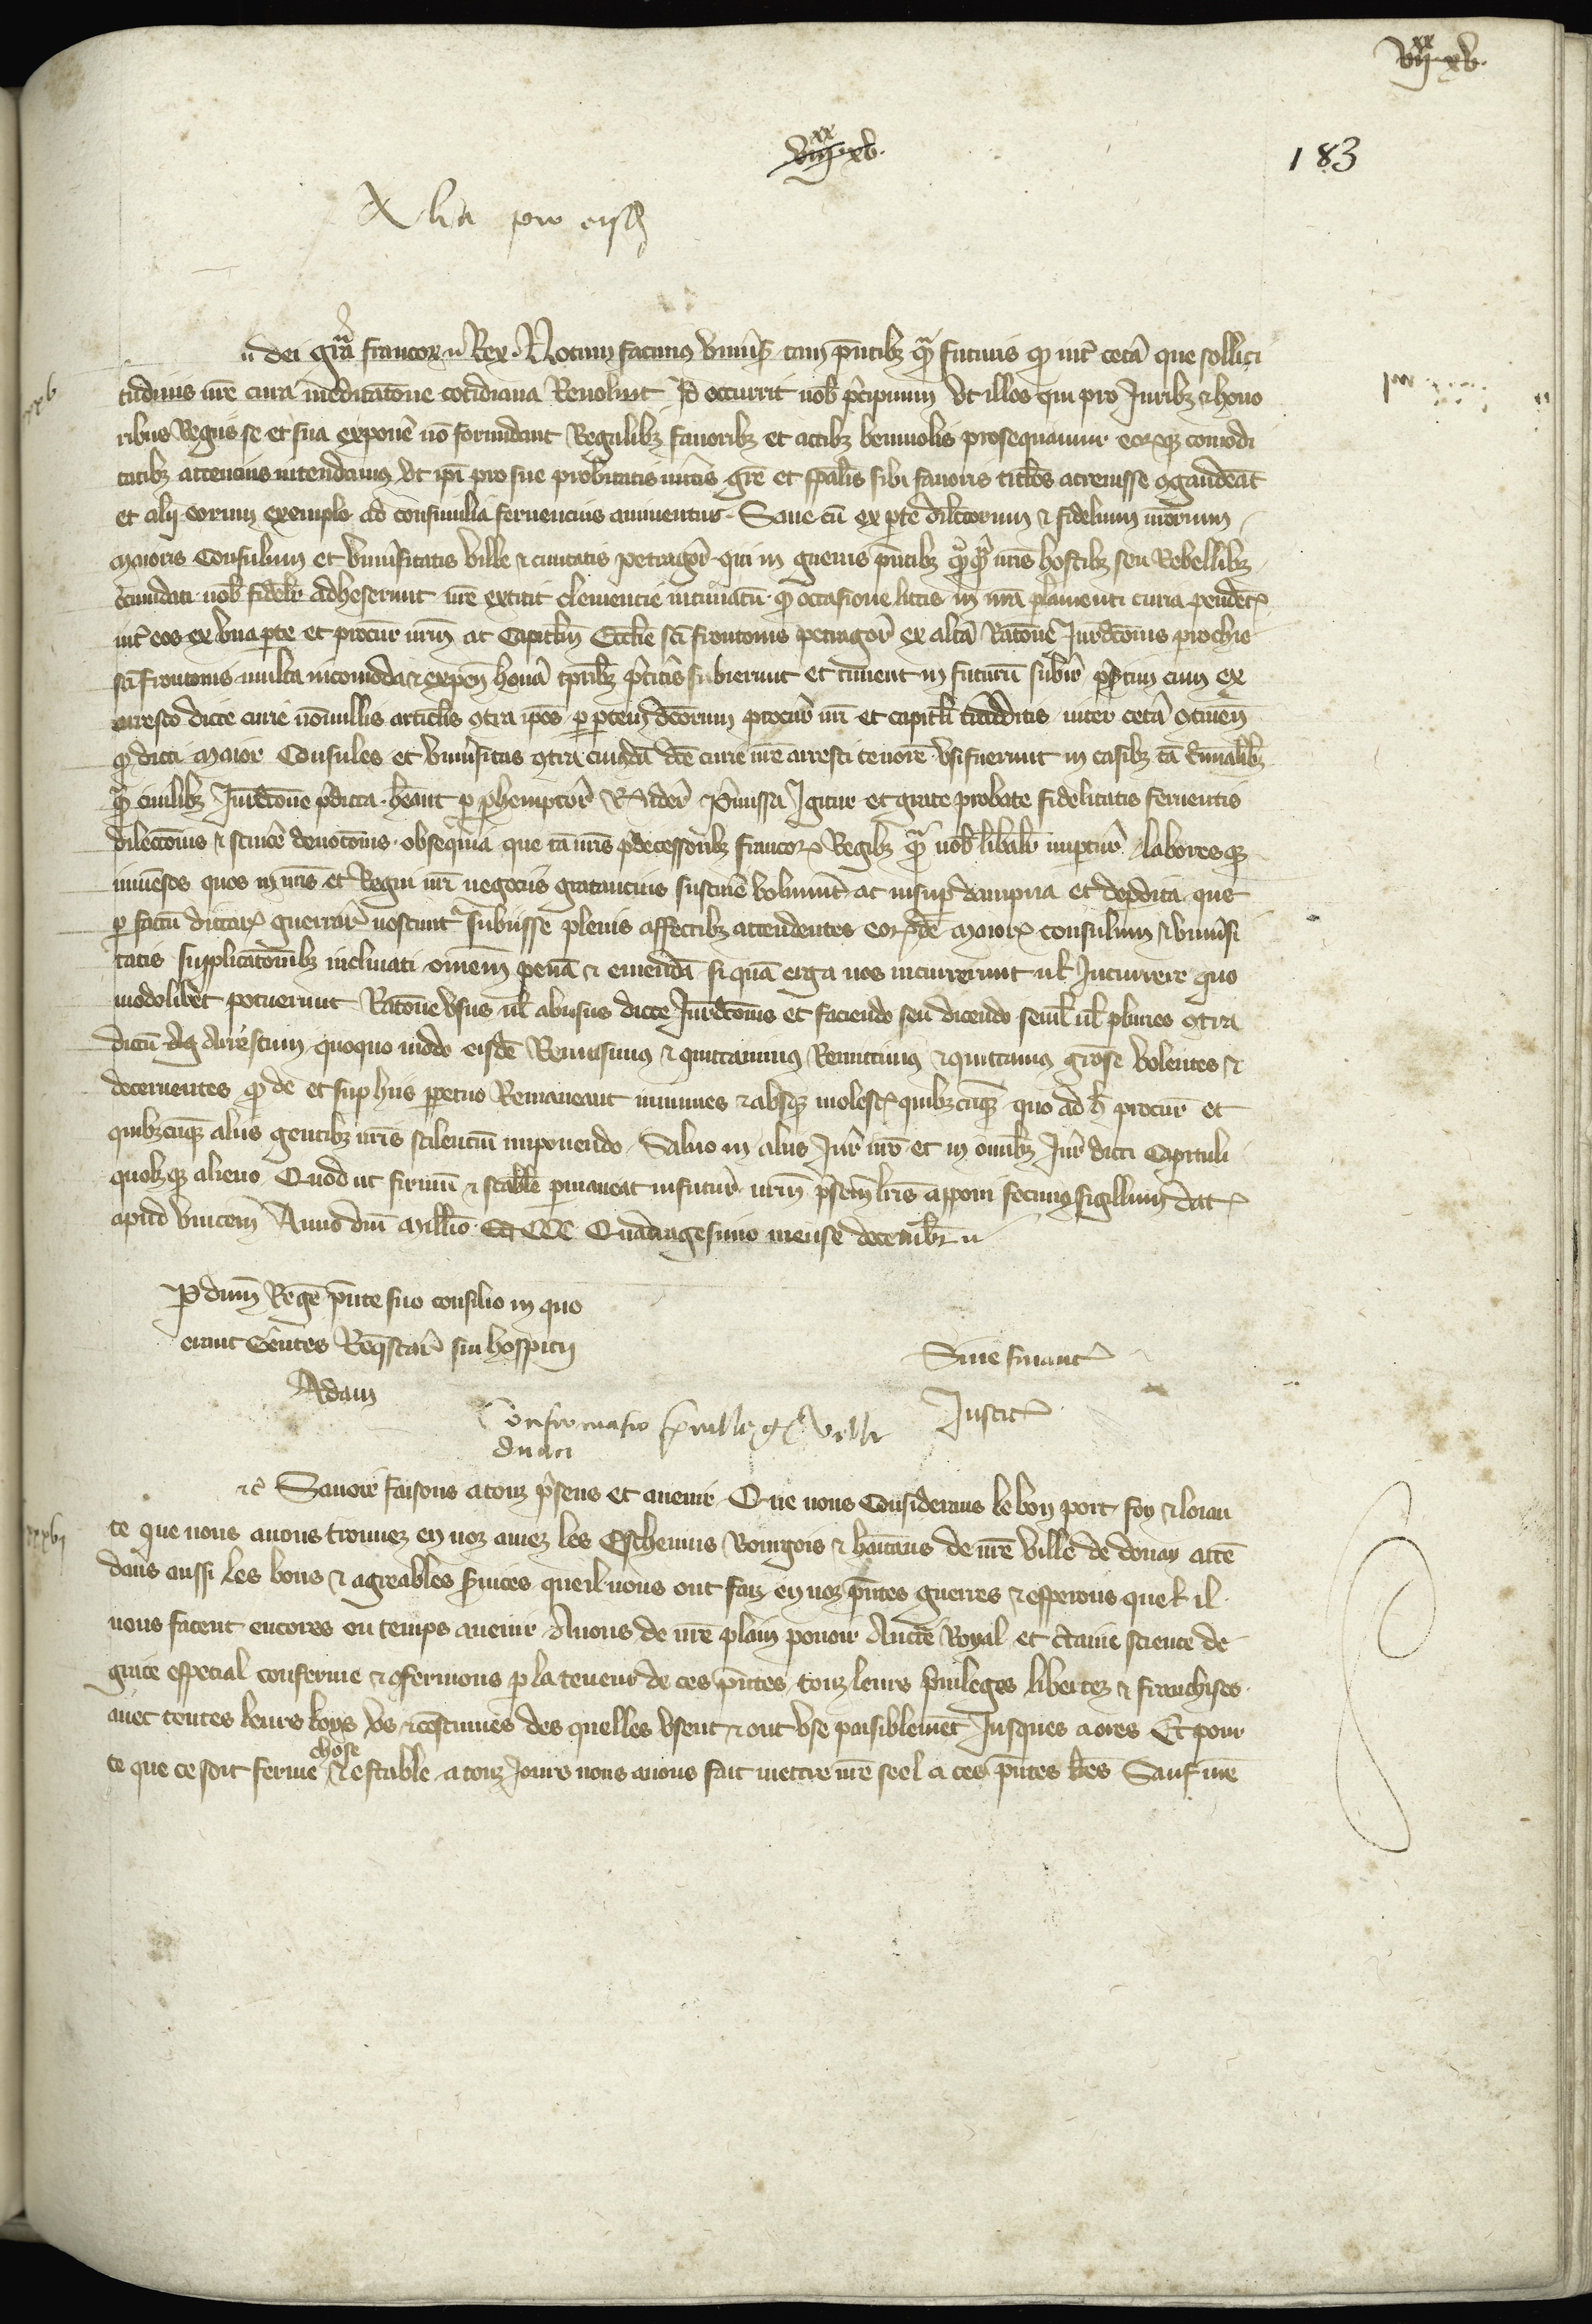 VIIxx XV.
VIIIxx XV.
183
Alia pro eisd
dei gra francorum Rex. Notum facimus univs tam pntibz qm futuris qd int ceta que sollici
tudinis nre cura meditatone cotidiana Revolvit Id occurrit nob pcipuum ut illos qui pro Juribz & hono
ribus Regiis se et sua expone no formidant Regalibz favoribz et actibz benivolis prosequamur eorqz comodi
tatibz attencius intendamus ut ipi pro sue probitatis mitis gre et spalis sibi favoris titlos acrevisse ogaudeat
et alij eorum exemplo ad consimilia fervencius animentur. Sane cu ex pte dilctorum & fidelium nrorum
Maioris Consulum et univsitatis ville & civitatis petragor qui in guerris pntibz nris hostibz seu Rebellibz
circundati nob fidelr adheserunt nre extitit clemencie intimatu qd occasione litis in nra plamenti curia pendet
int eos ex una pte et procur nrm ac Capitlm Ecclie sci frontonis petragor ex altra Ratone Jurdctonis prochie
sci frontonis multa incomoda & expen honra tpribz pteritis subierunt et timent in futuru subire psertim cum ex
arresto dicte curie nonnullis articlis otra ipos p ptem dcorum procur nri et capitli traditis inter ceta otinen
qd dicti Maior Consules et univsitas otra cuiusda dce curie nre arresti tenore usi fuerunt in casibz ta criminalibz
qm civilibz Jurdctone pdicta. heant p phemptor Rnder pmissa Igitur et grate probate fidelitatis ferventis
dilectonis & sincere devotonis obsequia que ta nris pdecessoribz francor Regibz qm nob libalr impenderut laboresqz
immensos quos in nris et Regni nri negociis gratancius sustinere voluerunt ac insup dampna et depdita que
p factu dictar guerrar noscunt subiisse plenis affectibz attendentes eordem Maioris consulum & univsi
tatis supplicatonibz inclinati omem pena & emenda si qua erga nos incurrerunt ul Incurrere quo
modolibet potuerunt Ratone usus ul abusus dicte Jurdctonis et faciendo seu dicendo semel ul plures otra
dictu Arrestum quoquo modo eisde Remisimus & quittavimus Remittimus & quittamus grose volentes &
decernentes qd de et sup hiis ppetuo Remaneant immunes & absqz molest quibzcuqz quo ad h procur et
quibzcuqz aliis gentibz nris scilencium imponendo. Salvo in aliis Jur nro et in omibz Jur dicti Capituli
quolzqz alieno Quod ut firmu & stabile pmaneat infutur nrm psentibz lris apponi fecimus sigillum dat
apud vincen Anno dni Millio CCC Quadragesimo mense decembr
P dnm Rege pnte suo consilio in quo
erant Gentes Reqstar sui hospitij
Adam
Sine financ
Justic
Confirmatio privilegior ville
duaci
&c Savoir faisons a touz psens et avenir Que nous Considerans le bon port foy & loiau
te que nous avons trouvez en noz amez les Eschevins Bourgois & hitans de nre ville de douay atte
dans aussi les bons & agreables svices que il nous ont faiz en noz pntes guerres & esperons que il
nous facent encores ou temps avenir Avons de nre plain povoir Aucte Royal et ctaine science de
grace especial conferme & ofermons p la teneur de ces pntes touz leurs privileges libertez & franchises
avec toutes leurs loys us & costumes des quelles usent & ont use paisiblement Jusques a ores Et pour
ce que ce soit ferme chose & estable a touz Jours nous avons fait mettre nre seel a ces pntes lres Sauf nre